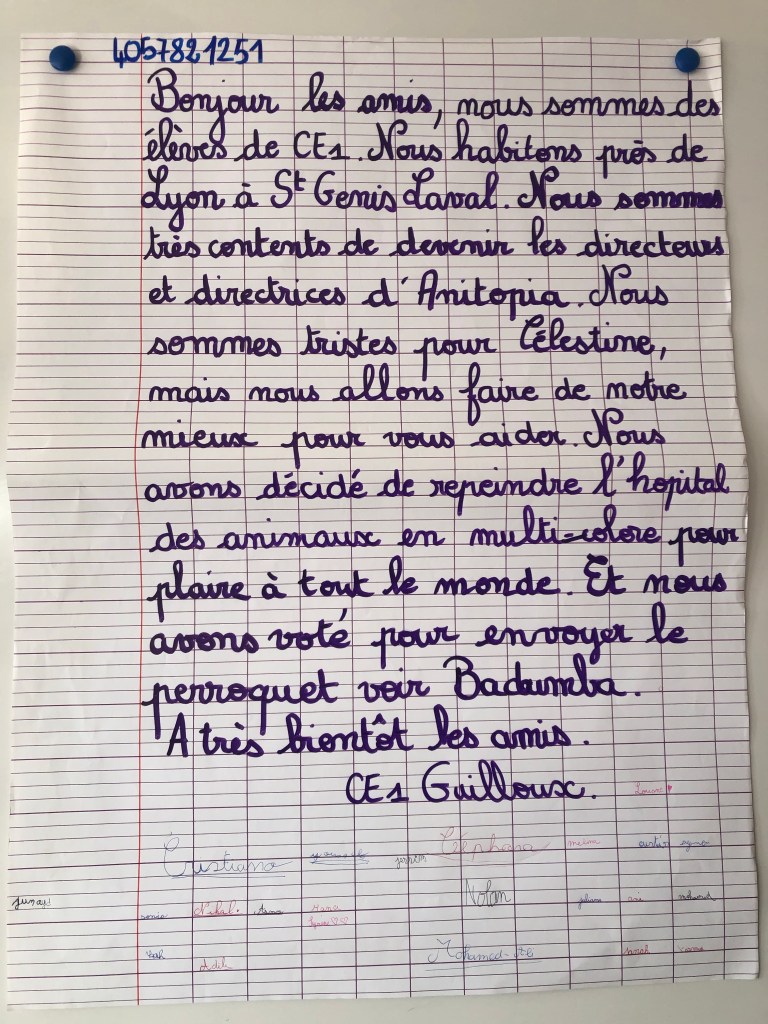 4057821251
Bonjour les amis, nous sommes des
élèves de CE1. Nous habitons près de
Lyon à St Genis Laval. Nous sommes
très contents de devenir les directeurs
et directrices d'Anitopia. Nous
sommes tristes pour Célestine,
mais nous allons faire de notre
mieux pour vous aider. Nous
avons décidé de repeindre l'hopital
des animaux en multi-colore pour
plaire à tout le monde. Et nous
avons voté pour envoyer le
perroquet voir Badumba.
A très bientôt les amis.
CE1 Guilloux.
Cristiano
Nolan
sonia Nihal.
Adel sarah